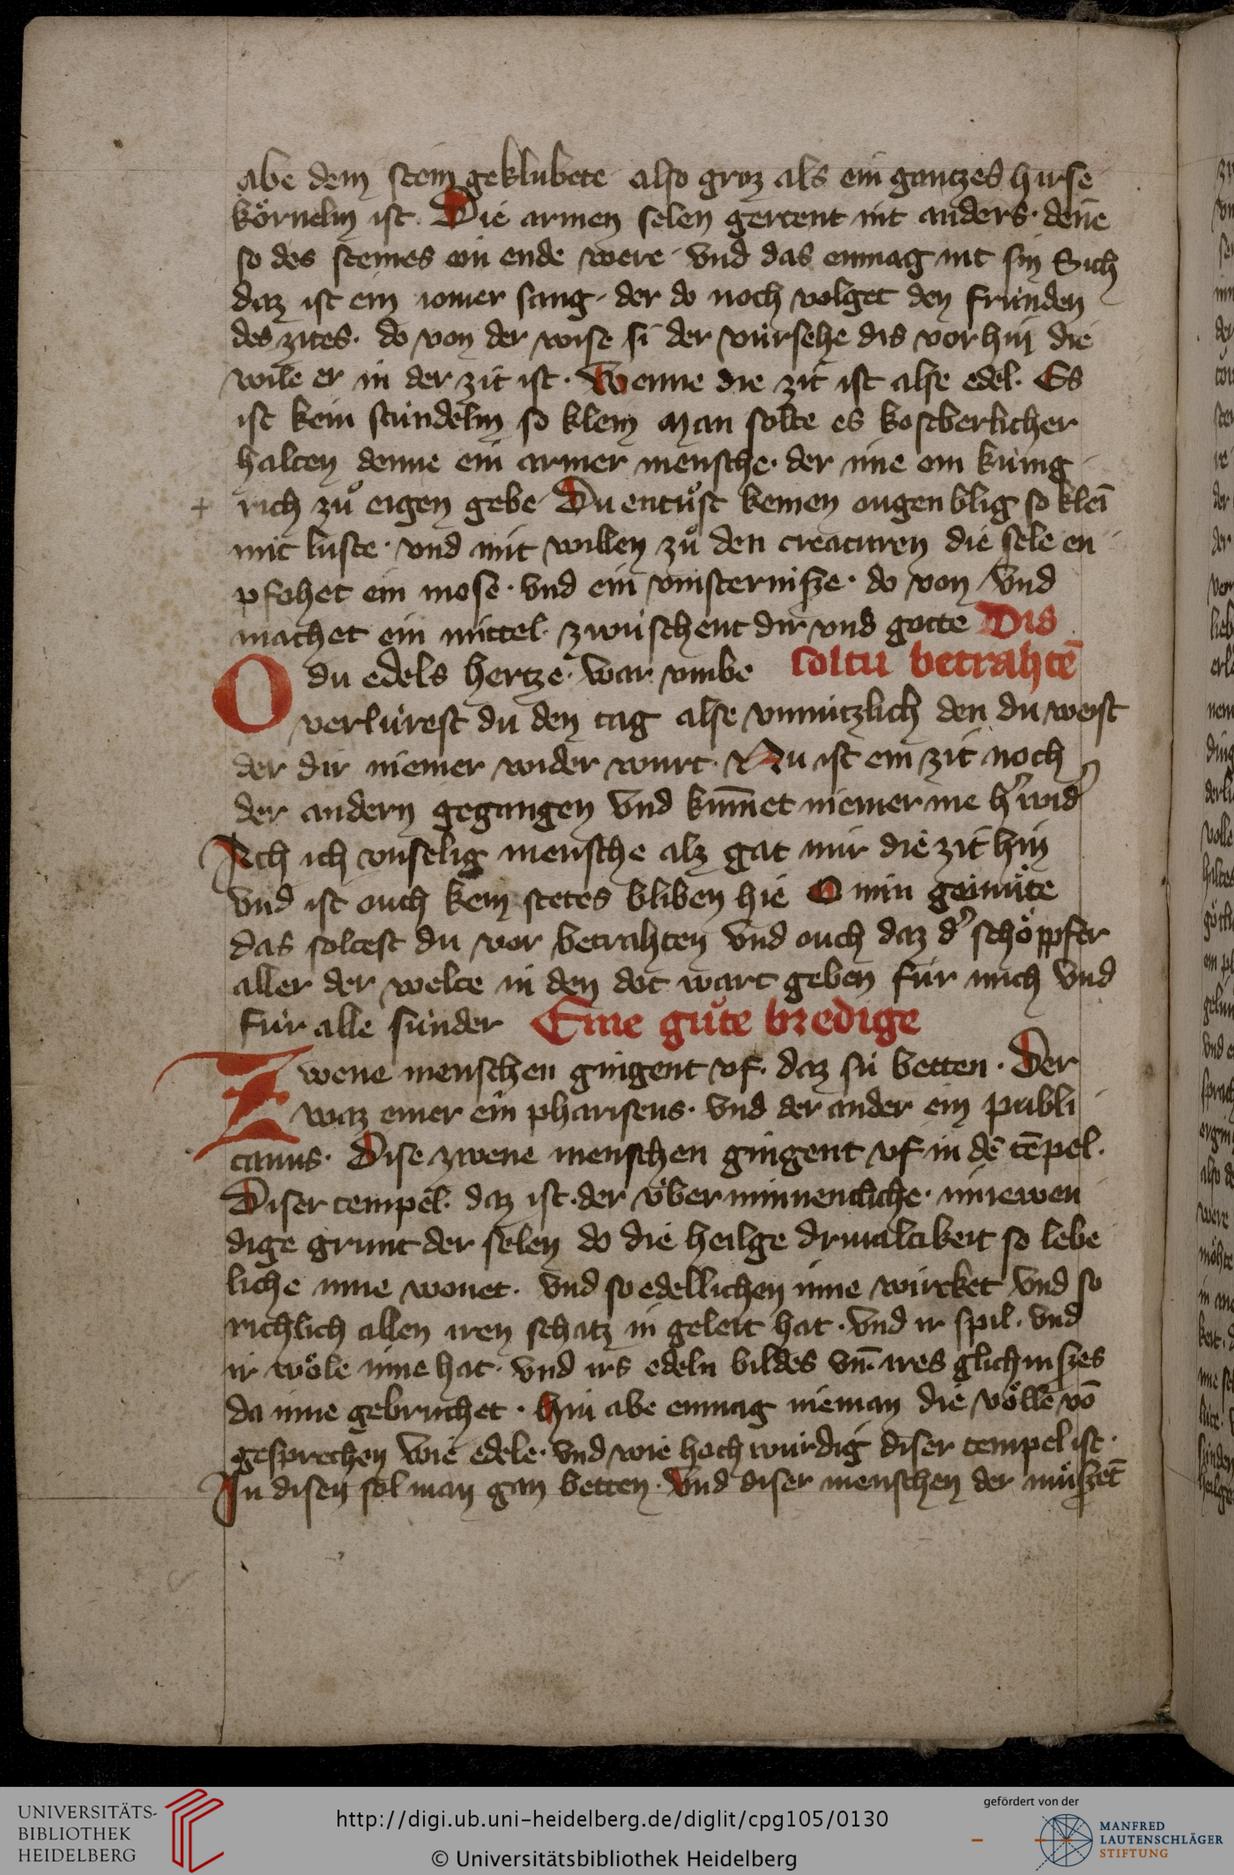 abe dem stein geklubete also groz als ein gantzes hirse
körnelin ist. Die armen selen gertent nit anders. dēne
so des steines ein ende were. vnd das enmag nit sin Sich
daz ist ein iomer sang. der do noch volget den frúnden
des zites. do von der wise si der vúrsehe dis vor hin die
wile er in der zit ist. Wenne die zit ist alse edel. Es
ist kein stúndelin so klein man solte es kostberlicher
halten denne ein armer mensche. der ime ein kúnig
+ rich zů eigen gebe. Du entůst keinen ougenblig so kleī
mit luste. vnd mit willen zů den creaturen die sele en
pfohet ein mose. vnd ein vinsternisze. do von vnd
machet ein mittel. zwúschent dir vnd gotte Dis
O du edels hertze. war vmbe soltu betrahtē
verlúrest du den tag alse vnnútzlich den du weist
der dir niemer wider wurt. Nu ist ein zit noch
der andern gegangen vnd kum̄et niemer me h'wid'
Ach ich vnselig mensche alz gat mir die zit hin
vnd ist ouch kein stetes bliben hie O min gemüte
das soltest du vor betrahten vnd ouch daz d' schöppfer
aller der welte in den dot wart geben für mich vnd
für alle súnder Eine gůte bredige
Zwene menschen gingent vf. daz sú betten. Der
waz einer ein phariseus. vnd der ander ein publi
canus. Dise zwene menschen gingent vf in dē tēpel.
Diser tempel. daz ist. der über minnentliche. innewen
dige grunt der selen do die heilge driualtikeit so lebe
liche inne wonet. vnd so edellichen inne würcket vnd so
richlich allen iren schatz in geleit hat. vnd ir spil. vnd
ir wöle inne hat. vnd irs edeln bildes vn̄. ires glichniszes
da inne gebruchet. hin abe enmag nieman die völle vō
gesprechen wie edele. vnd wie hoch wúrdig diser tempel ist.
In disen sol man gan betten. vnd diser menschen der müszēt
UNIVERSITÄTS-
BIBLIOTHEK
HEIDELBERG
http://digi.ub.uni-heidelberg.de/diglit/cpg105/0130
© Universitätsbibliothek Heidelberg
gefördert von der
MANFRED
LAUTENSCHLÄGER
STIFTUNG